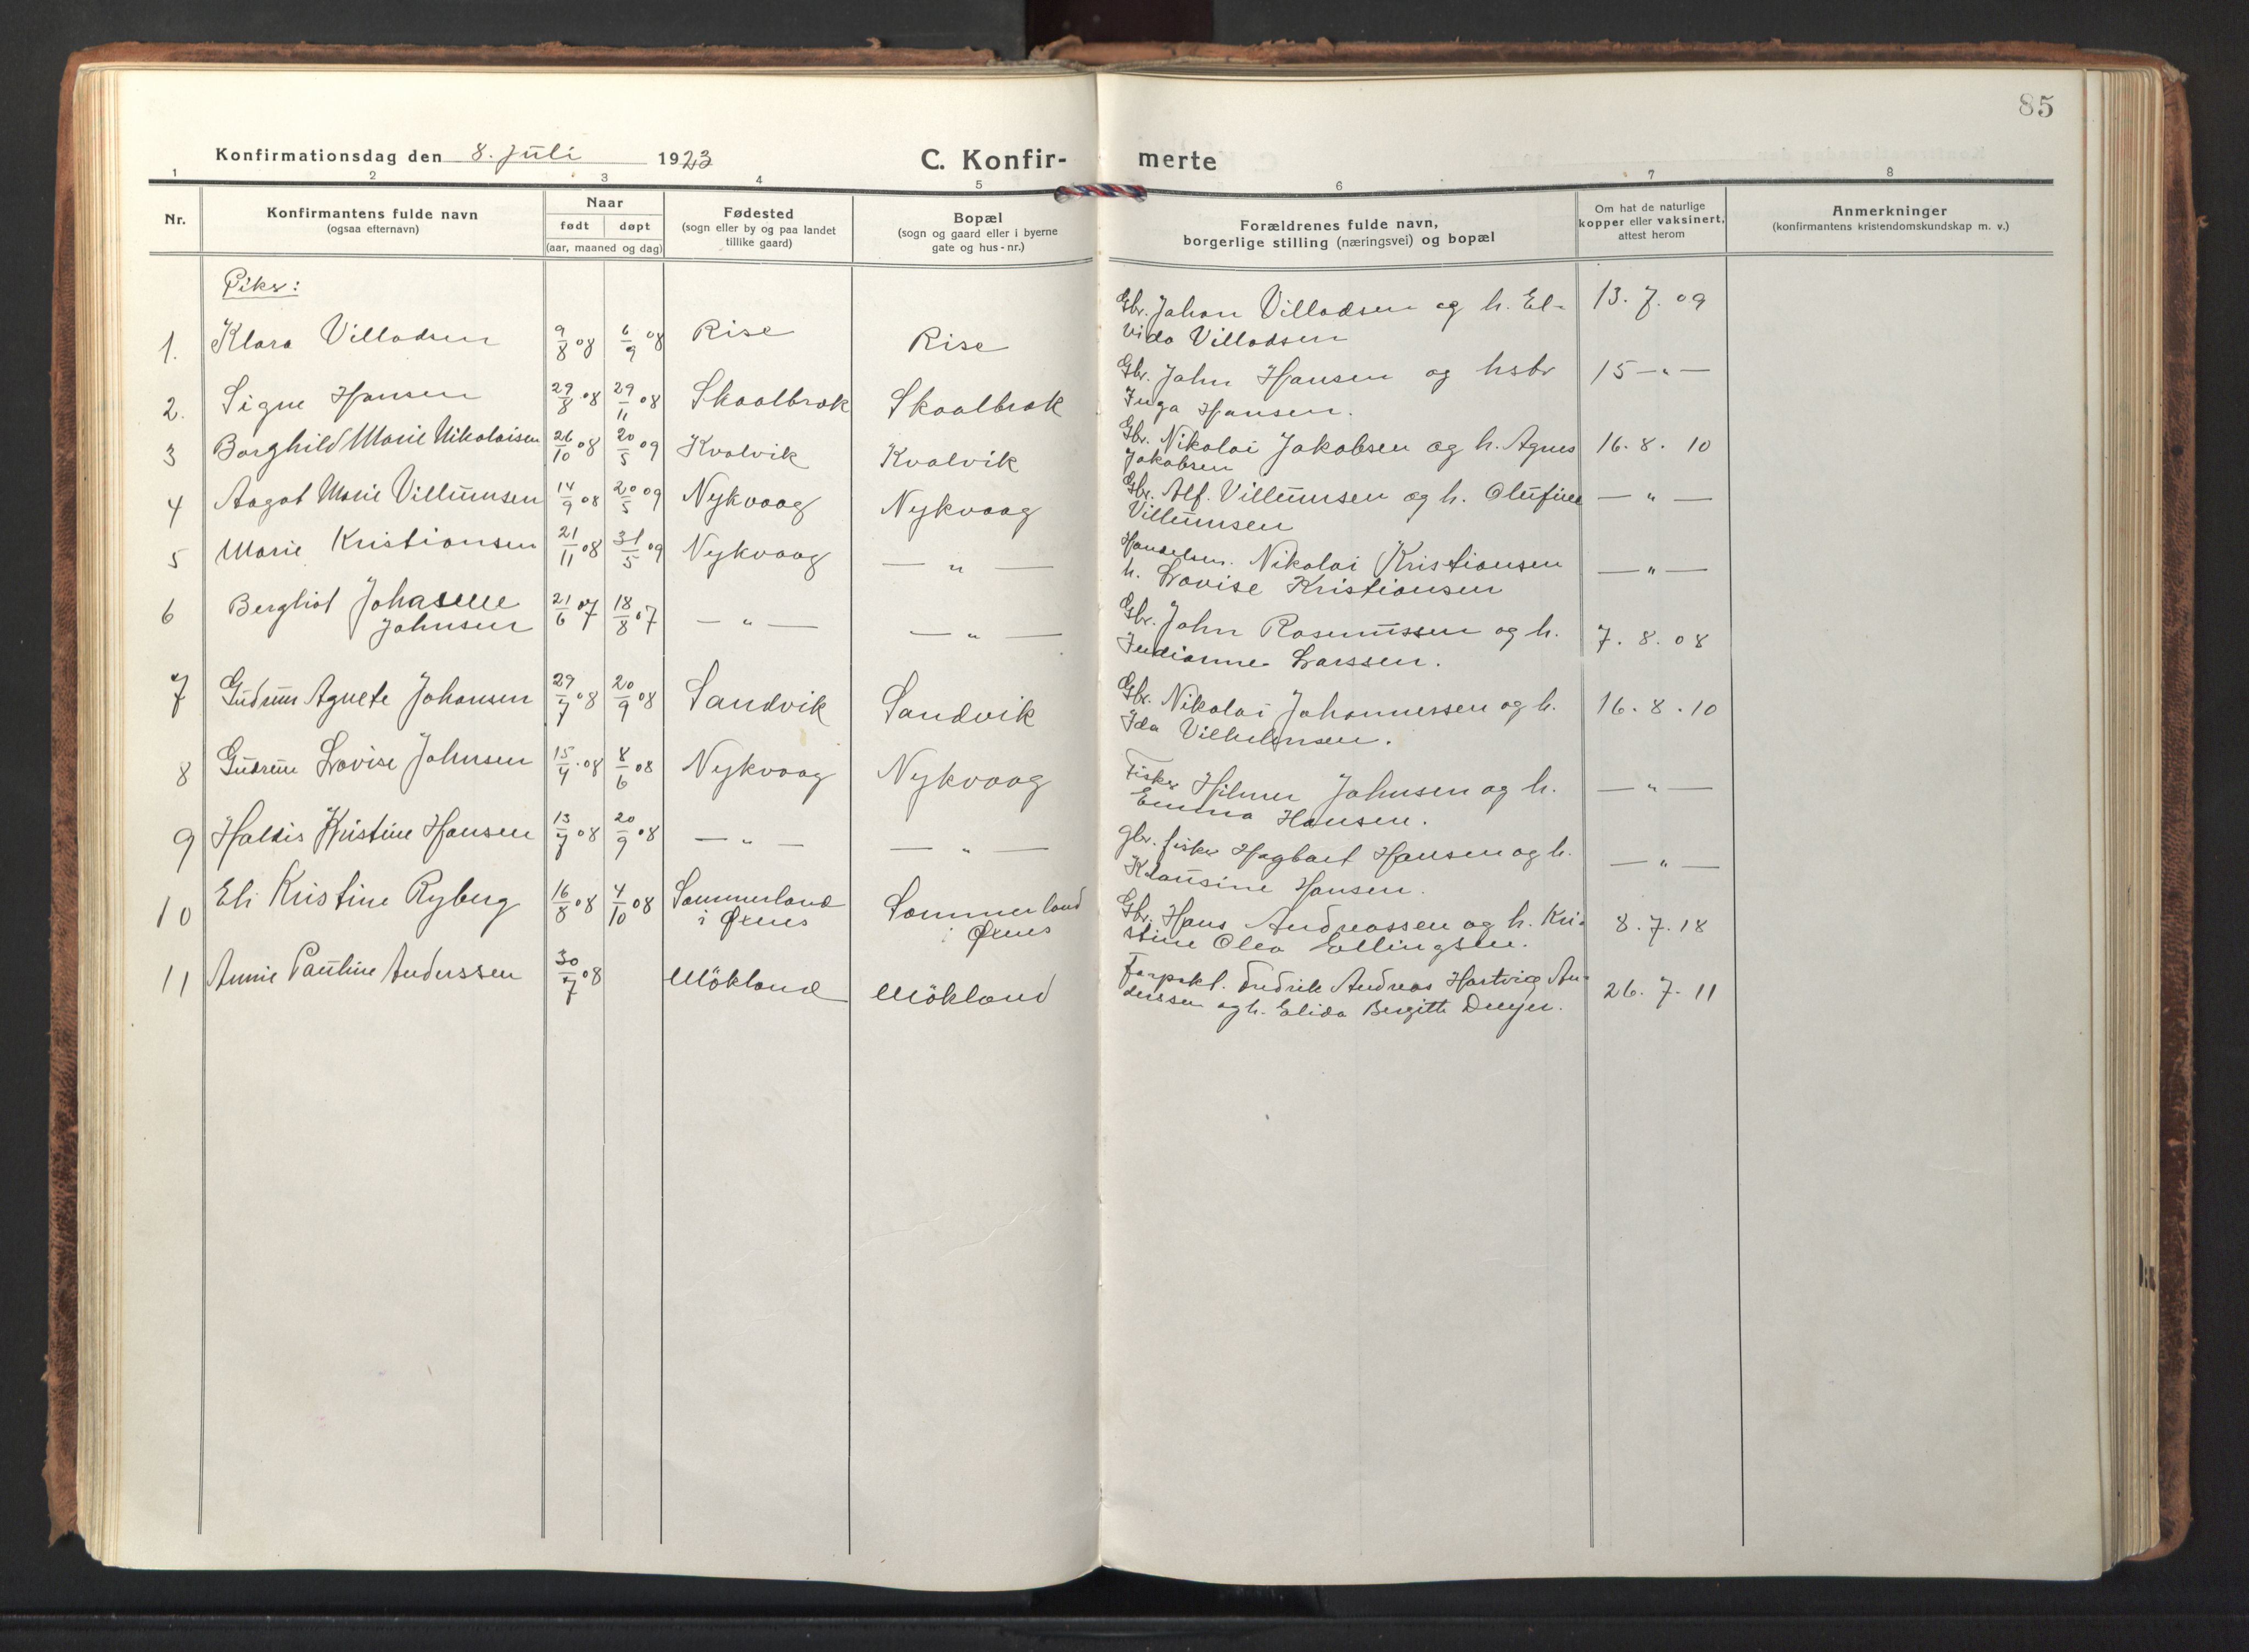 85
Konfirmationsdag den 8. Juli 1923
C. Konfir- merte
1 2 3 4 5 6 7 8
Nr.
Konfirmantens fulde navn
(ogsaa efternavn)
Naar
født døpt
(aar, maaned og dag)
Fødested
(sogn eller by og paa landet
tillike gaard)
Bopæl
(sogn og gaard eller i byerne
gate og hus-nr.)
Forældrenes fulde navn,
borgerlige stilling (næringsvei) og bopæl
Om hat de naturlige
kopper eller vaksinert,
attest herom
Anmerkninger
(konfirmantens kristendomskundskap m. v.)
Piker:
1. Klara Villadsen 9/8 08 6/9 08 Rise Rise Gbr. Johan Villadsen og h. El- 13. 7. 09
vida Villadsen
2. Signe Hansen 29/8 08 29/11 08 Skaalbrok Skaalbrok Gbr. John Hansen og hstr 15 — " —
Inga Hansen.
3 Borghild Marie Nikolaisen 26/10 08 20/5 09 Kvalvik Kvalvik Gbr. Nikolai Jakobsen og h. Agnes 16. 8. 10
Jakobsen
4 Aagot Marie Villumsen 14/9 08 20/5 09 Nykvaag Nykvaag Gbr. Alf. Villumsen og h. Olufine — " —
Villumsen
5 Marie Kristiansen 21/11 08 31/5 09 Nykvaag — " — Handelsm. Nikolai Kristiansen — " —
h. Lovise Kristiansen
6 Bergliot Johanne 21/6 07 18/8 07 — " — — " — Gbr. John Rasmussen og h. 7. 8. 08
Johnsen Indianne Larssen.
7 Gudrun Agnete Johansen 29/7 08 20/9 08 Sandvik Sandvik Gbr. Nikolai Johannessen og h. 16. 8. 10
Ida Vilhelmsen.
8 Gudrun Lovise Johnsen 15/4 08 8/6 08 Nykvaag Nykvaag Fisker Hilmer Johnsen og h. — " —
Emma Hansen.
9 Haldis Kristine Hansen 13/7 08 20/9 08 — " — — " — gbr. fisker Hagbart Hansen og h. — " —
Klausine Hansen.
10 Eli Kristine Ryberg 16/8 08 4/10 08 Sommerland Sommerland Gbr. Hans Andreassen og h. Kri- 8. 7. 18
i Øxnes i Øxnes stine Olea Ellingsen.
11 Annie Pauline Anderssen 30/7 08 Mökland Mökland Forpakt. Fredrik Andreas Hartvig An- 26. 7. 11
derssen og h. Elida Bergitte Dreyer.